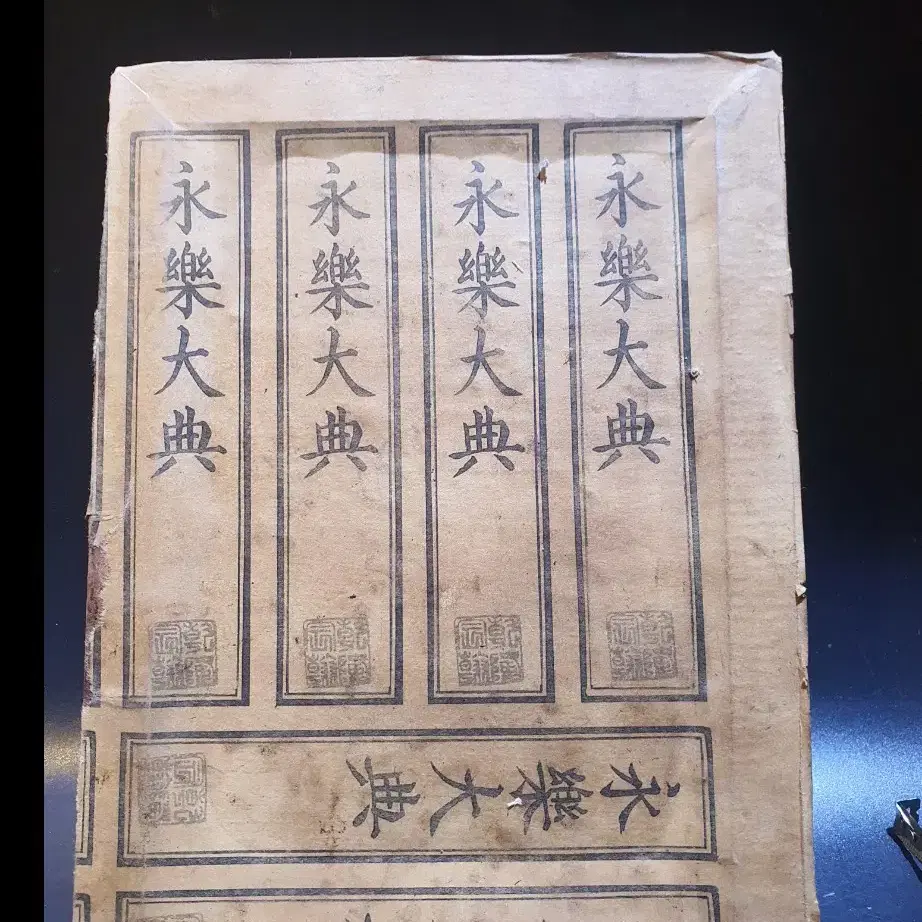 永樂大典
永樂大典
永樂大典
永樂大典
永樂大典